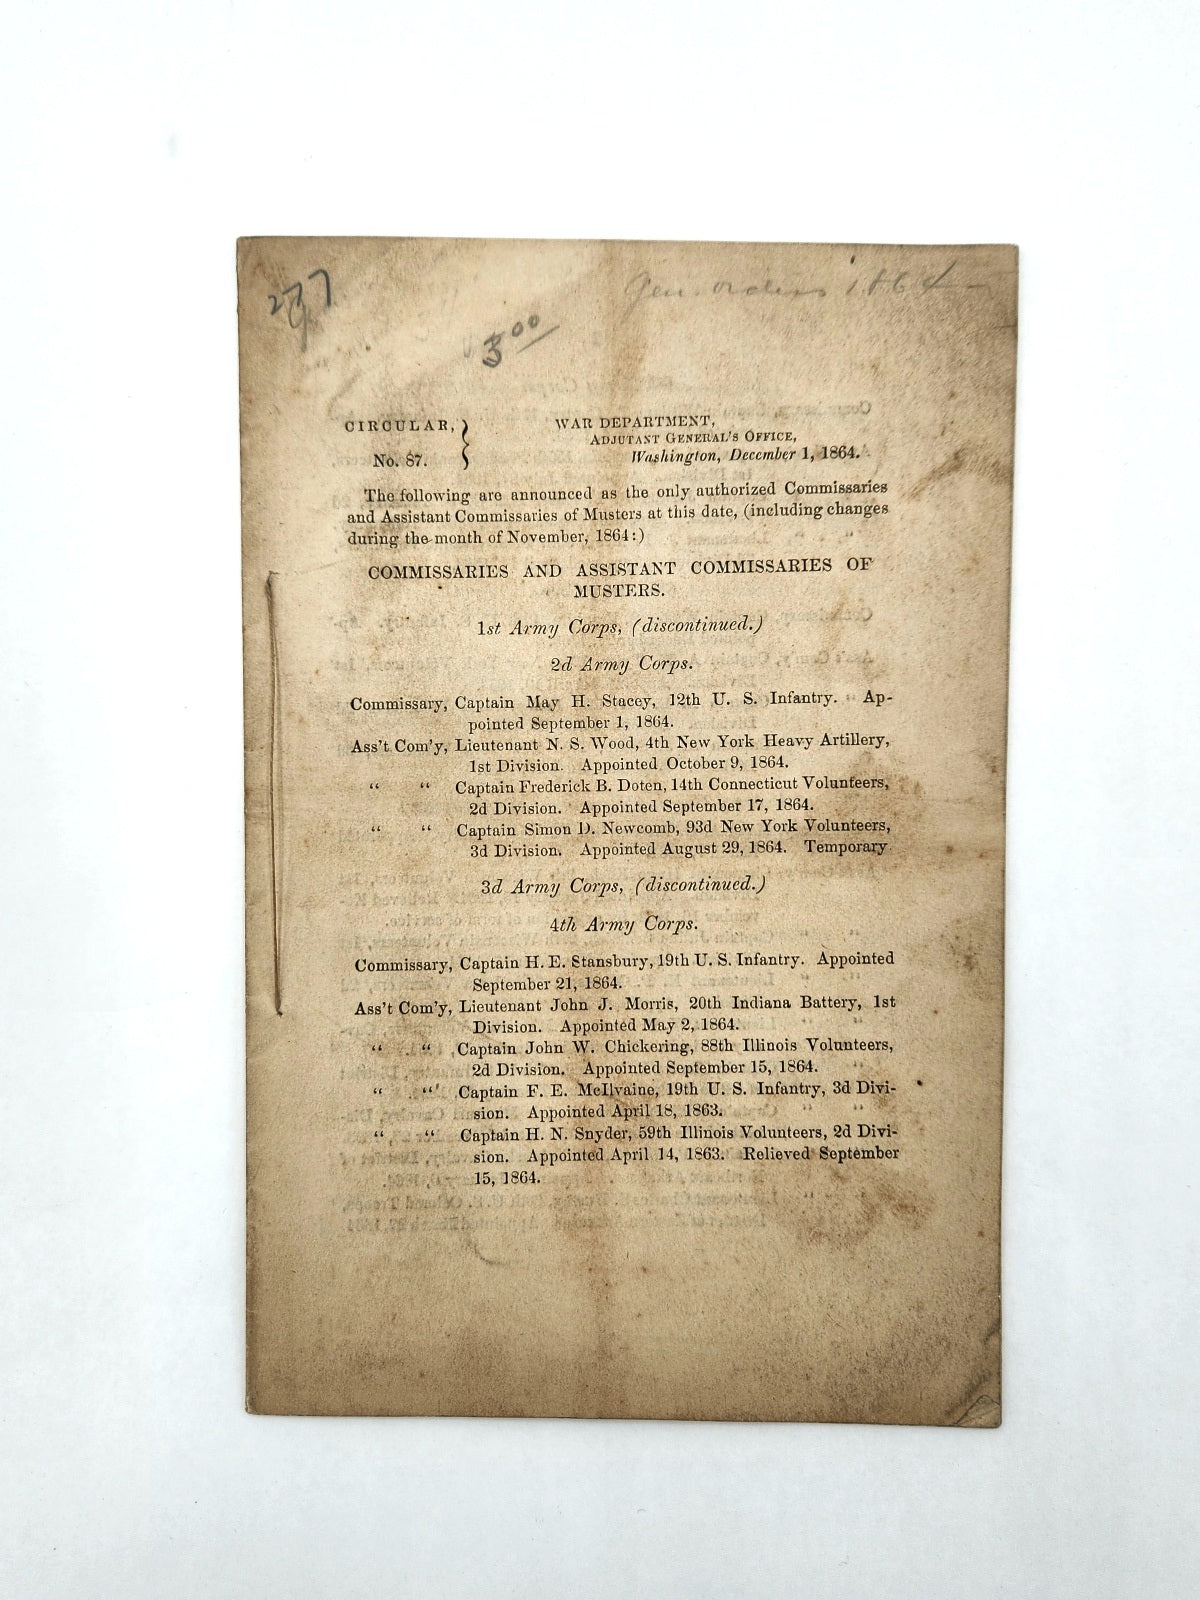 277
Gen. orders 1864
3 00
CIRCULAR,
No. 87.
WAR DEPARTMENT,
ADJUTANT GENERAL'S OFFICE,
Washington, December 1, 1864.
The following are announced as the only authorized Commissaries
and Assistant Commissaries of Musters at this date, (including changes
during the month of November, 1864:)
COMMISSARIES AND ASSISTANT COMMISSARIES OF
MUSTERS.
1st Army Corps, (discontinued.)
2d Army Corps.
Commissary, Captain May H. Stacey, 12th U. S. Infantry. Ap-
pointed September 1, 1864.
Ass't Com'y, Lieutenant N. S. Wood, 4th New York Heavy Artillery,
1st Division. Appointed October 9, 1864.
" " Captain Frederick B. Doten, 14th Connecticut Volunteers,
2d Division. Appointed September 17, 1864.
" " Captain Simon D. Newcomb, 93d New York Volunteers,
3d Division. Appointed August 29, 1864. Temporary
3d Army Corps, (discontinued.)
4th Army Corps.
Commissary, Captain H. E. Stansbury, 19th U. S. Infantry. Appointed
September 21, 1864.
Ass't Com'y, Lieutenant John J. Morris, 20th Indiana Battery, 1st
Division. Appointed May 2, 1864.
" " Captain John W. Chickering, 88th Illinois Volunteers,
2d Division. Appointed September 15, 1864.
" " Captain F. E. McIlvaine, 19th U. S. Infantry, 3d Divi-
sion. Appointed April 18, 1863.
" " Captain H. N. Snyder, 59th Illinois Volunteers, 2d Divi-
sion. Appointed April 14, 1863. Relieved September
15, 1864.